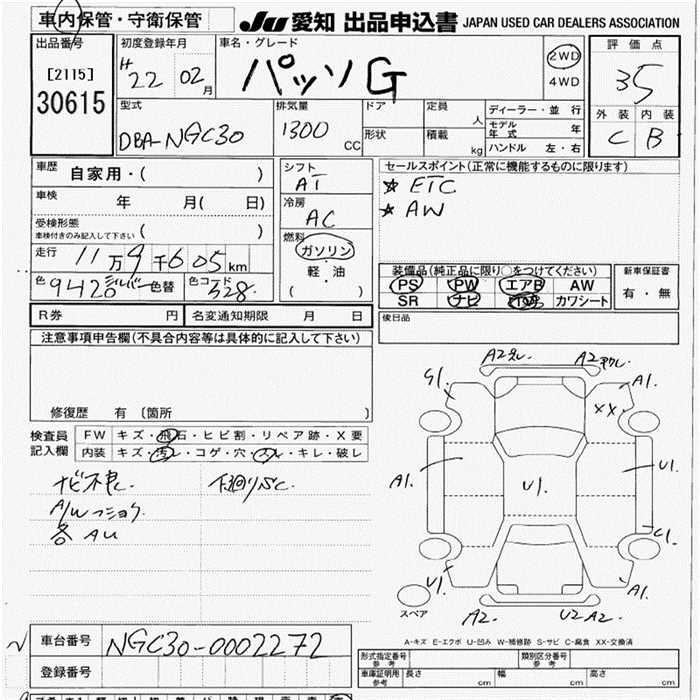 車内保管・守衛保管 JU 愛知 出品申込書 JAPAN USED CAR DEALERS ASSOCIATION
出品番号 初度登録年月 車名・グレード 評価点
[2115] H 22 02月 パッソG 2WD 35
30615 4WD
型式 排気量 ドア 定員 人 ディーラー・並行 外装 内装
DBA-NGC30 1300 CC 形状 積載 kg モデル年式 年 C B
ハンドル 左・右
車歴 自家用・( ) シフト セールスポイント(正常に機能するものに限ります)
AT ☆ ETC
車検 年 月( 日) 冷房 ☆ AW
AC
受検形態
車検付きのみ記入して下さい ( ) 燃料
走行 11万9千605km ガソリン
軽・油
( )
色 9420 シルバー 色替 色コード S28.
装備品(純正品に限り○をつけてください) 新車保証書
PS PW エアB AW 有・無
SR ナビ カワシート
R券 円 名変通知期限 月 日 後日品
注意事項申告欄(不具合内容等は具体的に記入して下さい)
修復歴 有 〔箇所 〕
検査員 FW キズ・飛石・ヒビ割・リペア跡・X要
記入欄 内装 キズ・汚レ・コゲ・穴・スレ・キレ・破レ
ナビ不良. 下廻りサビ.
A/Wフショク.
各 AU
A2 A2
G1. A1.
XX
A1. U1. U1.
C1.
U1 A1.
スペア A2. U2 A2.
A-キズ E-エクボ U-凹み W-補修跡 S-サビ C-腐食 XX-交換済
車台番号 NGC30-0002272
登録番号
形式指定番号 参考 類別区分番号 参考
車庫証明用 参考 長さ cm 幅 cm 高さ cm